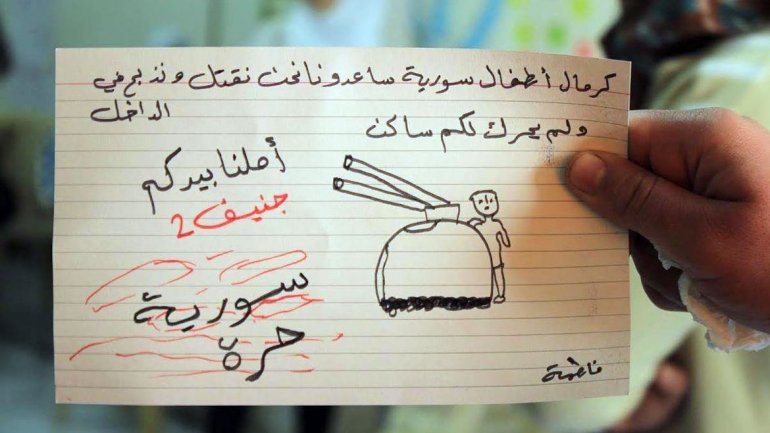 كرمال أطفال سورية ساعدونا نحن نقتل ونذبح في
الداخل
ولم يحرك لكم ساكن
أملنا بيدكم
جنيف 2
سورية
حرة
فاطمة